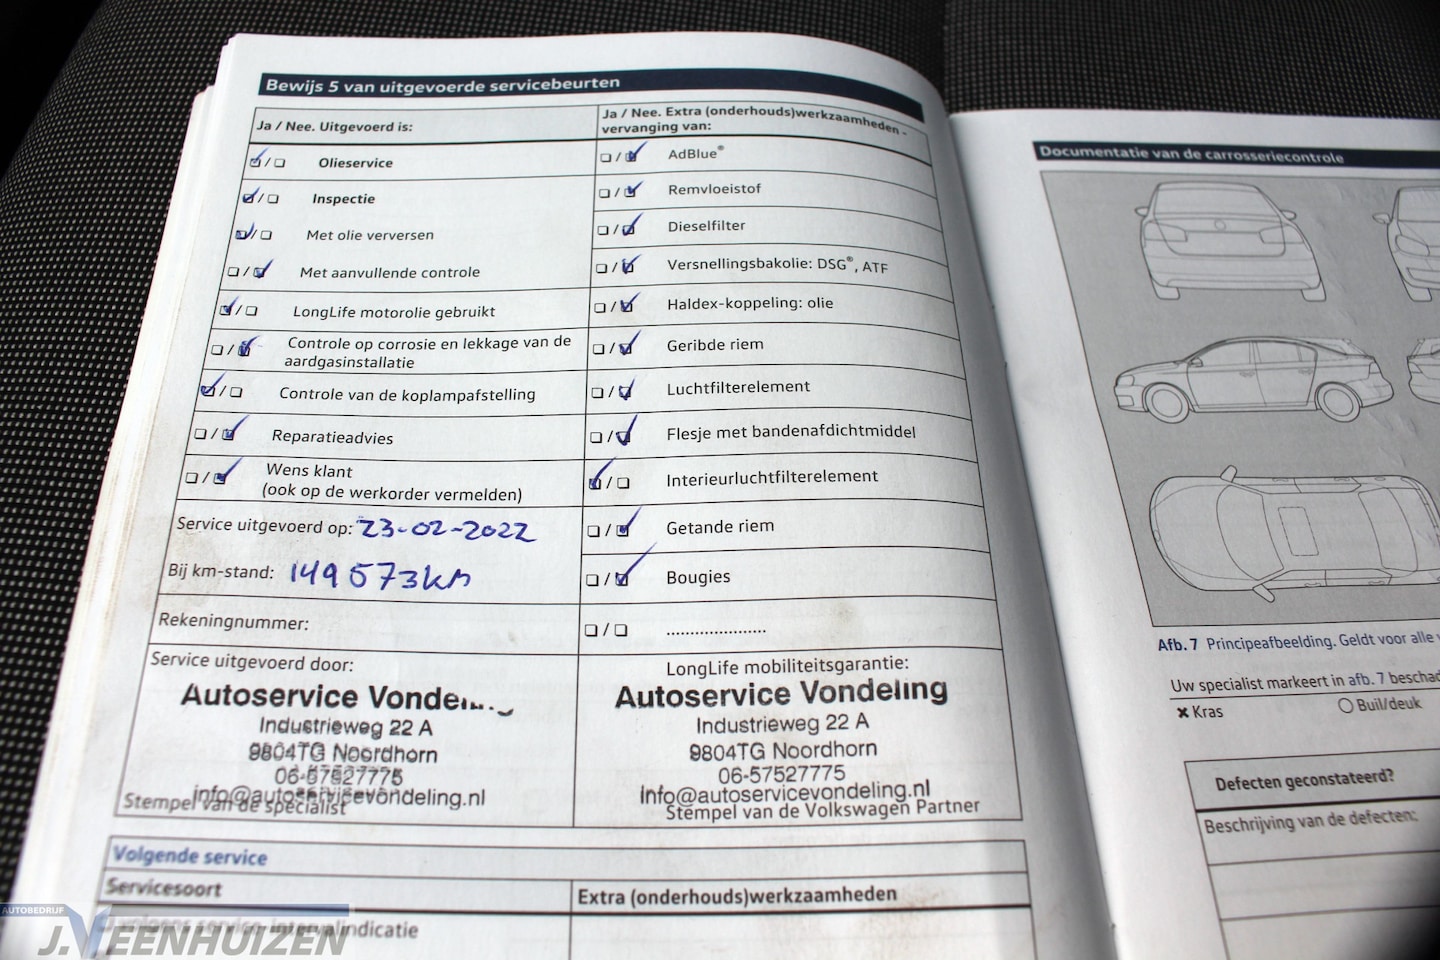 Bewijs 5 van uitgevoerde servicebeurten
Ja / Nee. Uitgevoerd is:
Olieservice
Inspectie
Met olie verversen
Met aanvullende controle
LongLife motorolie gebruikt
Controle op corrosie en lekkage van de
aardgasinstallatie
Controle van de koplampafstelling
Reparatieadvies
Wens klant
(ook op de werkorder vermelden)
Service uitgevoerd op: 23-02-2022
Bij km-stand: 149573km
Rekeningnummer:
Service uitgevoerd door:
Autoservice Vondeling
Industrieweg 22 A
9804TG Noordhorn
06-57527775
info@autoservicevondeling.nl
Stempel van de specialist
Ja / Nee. Extra (onderhouds)werkzaamheden -
vervanging van:
AdBlue®
Remvloeistof
Dieselfilter
Versnellingsbakolie: DSG®, ATF
Haldex-koppeling: olie
Geribde riem
Luchtfilterelement
Flesje met bandenafdichtmiddel
Interieurluchtfilterelement
Getande riem
Bougies
......................
LongLife mobiliteitsgarantie:
Autoservice Vondeling
Industrieweg 22 A
9804TG Noordhorn
06-57527775
Info@autoservicevondeling.nl
Stempel van de Volkswagen Partner
Volgende service
Servicesoort
Extra (onderhouds)werkzaamheden
Documentatie van de carrosseriecontrole
Afb. 7 Principeafbeelding. Geldt voor alle
Uw specialist markeert in afb. 7
Kras
Buil/deuk
Defecten geconstateerd?
Beschrijving van de defecten:
AUTOBEDRIJF
J.VEENHUIZEN